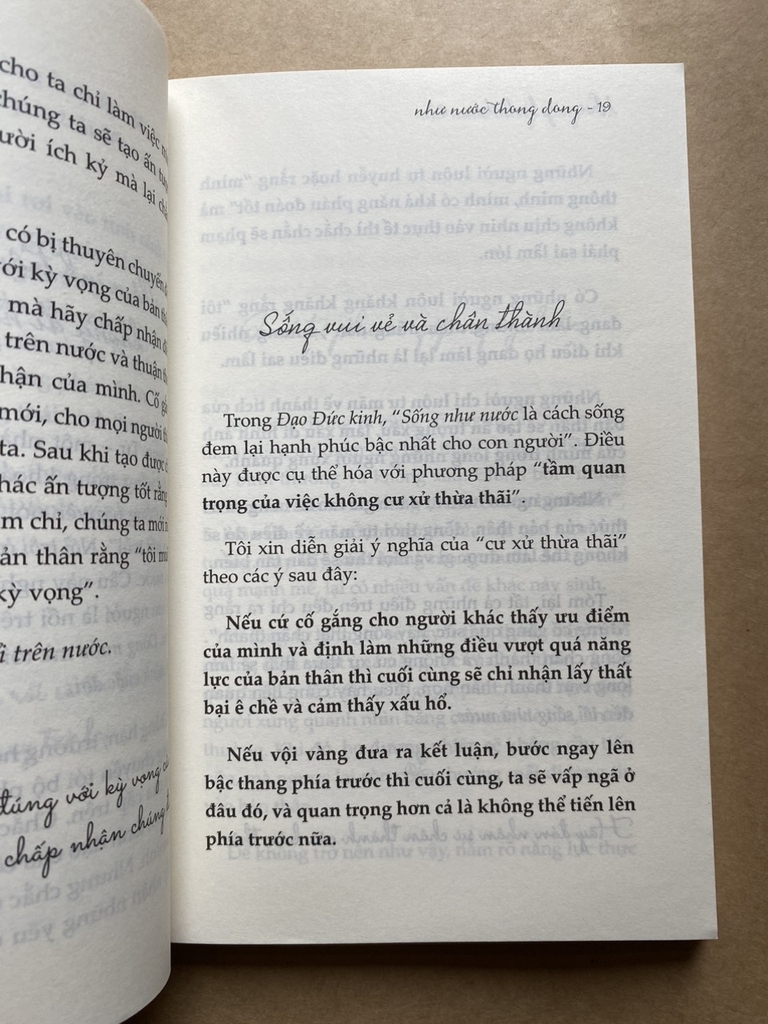 cho ta chỉ làm việc
chúng ta sẽ tạo ấn
ười ích kỷ mà lại
có bị thuyên chuyển
ới kỳ vọng của bản
mà hãy chấp nhận
trên nước và thuận
hận của mình. Cố
mới, cho mọi người
ta. Sau khi tạo được
hác ấn tượng tốt rằng
m chỉ, chúng ta mới
ản thân rằng “tôi
kỳ vọng”.
i trên nước.
đúng với kỳ vọng
chấp nhận chúng
như nước thong dong - 19
Sống vui vẻ và chân thành
Trong Đạo Đức kinh, “Sống như nước là cách sống
đem lại hạnh phúc bậc nhất cho con người”. Điều
này được cụ thể hóa với phương pháp “tầm quan
trọng của việc không cư xử thừa thãi”.
Tôi xin diễn giải ý nghĩa của “cư xử thừa thãi”
theo các ý sau đây:
Nếu cứ cố gắng cho người khác thấy ưu điểm
của mình và định làm những điều vượt quá năng
lực của bản thân thì cuối cùng sẽ chỉ nhận lấy thất
bại ê chề và cảm thấy xấu hổ.
Nếu vội vàng đưa ra kết luận, bước ngay lên
bậc thang phía trước thì cuối cùng, ta sẽ vấp ngã ở
đâu đó, và quan trọng hơn cả là không thể tiến lên
phía trước nữa.